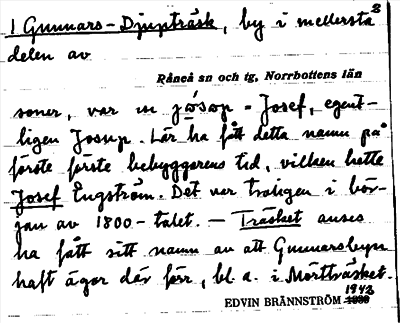 1 Gunnars-Djupträsk, by i mellersta 8
delen av
Råneå sn och tg, Norrbottens län
soner, var en jåsåp = Josef, egent-
ligen Josup. Lär ha fått detta namn på
förste förste bebyggarens tid, vilken hette
Josef Engström. Det var troligen i bör-
jan av 1800-talet. — Träsket anses
ha fått sitt namn av att Gunnarsbyn
haft ägor där förr, bl. a. i Mörtträsket.
EDVIN BRÄNNSTRÖM 1943